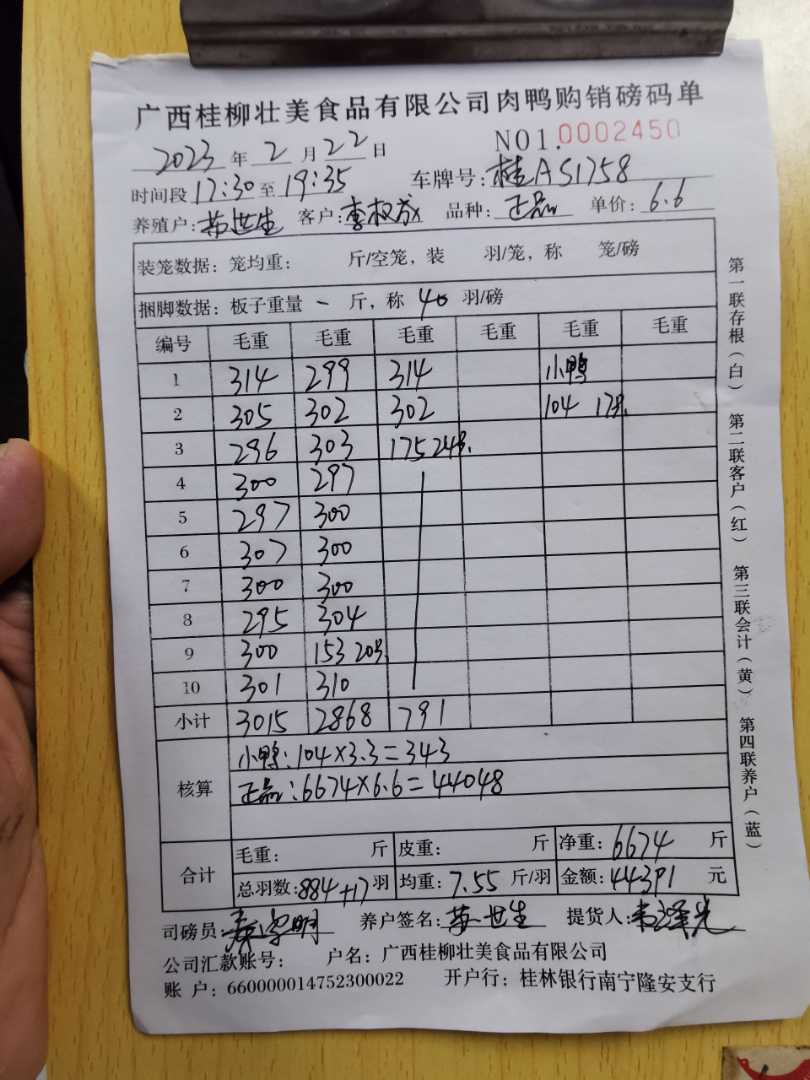 广西桂柳壮美食品有限公司肉鸭购销磅码单
NO1.0002450
2023年2月22日
时间段17:30至19:35 车牌号:桂AS1758
养殖户: 客户:李权 品种:正品 单价:6.6
装笼数据:笼均重: 斤/空笼,装 羽/笼,称 笼/磅
捆脚数据:板子重量 一 斤,称 40 羽/磅
编号 毛重 毛重 毛重 毛重 毛重 毛重
1 314 299 314 小鸭
2 305 302 302 104 17只
3 296 303 175 24只
4 300 297
5 297 300
6 307 300
7 300 300
8 295 304
9 300 153 20只
10 301 310
小计 3015 2868 791
核算 小鸭:104×3.3=343
正品:6674×6.6=44048
合计 毛重: 斤 皮重: 斤 净重:6674 斤
总羽数:884+17羽 均重:7.55 斤/羽 金额:44391 元
司磅员: 养户签名: 提货人:
公司汇款账号: 户名:广西桂柳壮美食品有限公司
账 户:660000014752300022 开户行:桂林银行南宁隆安支行
第一联存根(白) 第二联客户(红) 第三联会计(黄) 第四联养户(蓝)